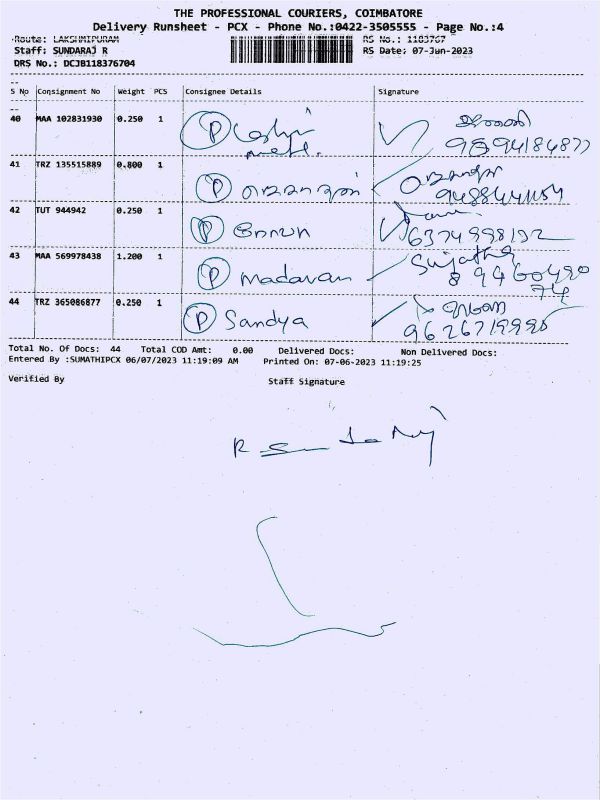 THE PROFESSIONAL COURIERS, COIMBATORE
Delivery Runsheet - PCX - Phone No.:0422-3505555 - Page No.:4
Route: LAKSHMIPURAM RS No.: 1183767
Staff: SUNDARAJ R RS Date: 07-Jun-2023
DRS No.: DCJB118376704
S No Consignment No Weight PCS Consignee Details Signature
40 MAA 102831930 0.250 1 P
41 TRZ 135515889 0.800 1 P
42 TUT 944942 0.250 1 P
6374998192
43 MAA 569978438 1.200 1 P Madavan Sujatha
44 TRZ 365086877 0.250 1 P Sandya
9626719998
Total No. Of Docs: 44 Total COD Amt: 0.00 Delivered Docs: Non Delivered Docs:
Entered By :SUMATHIPCX 06/07/2023 11:19:09 AM Printed On: 07-06-2023 11:19:25
Verified By Staff Signature